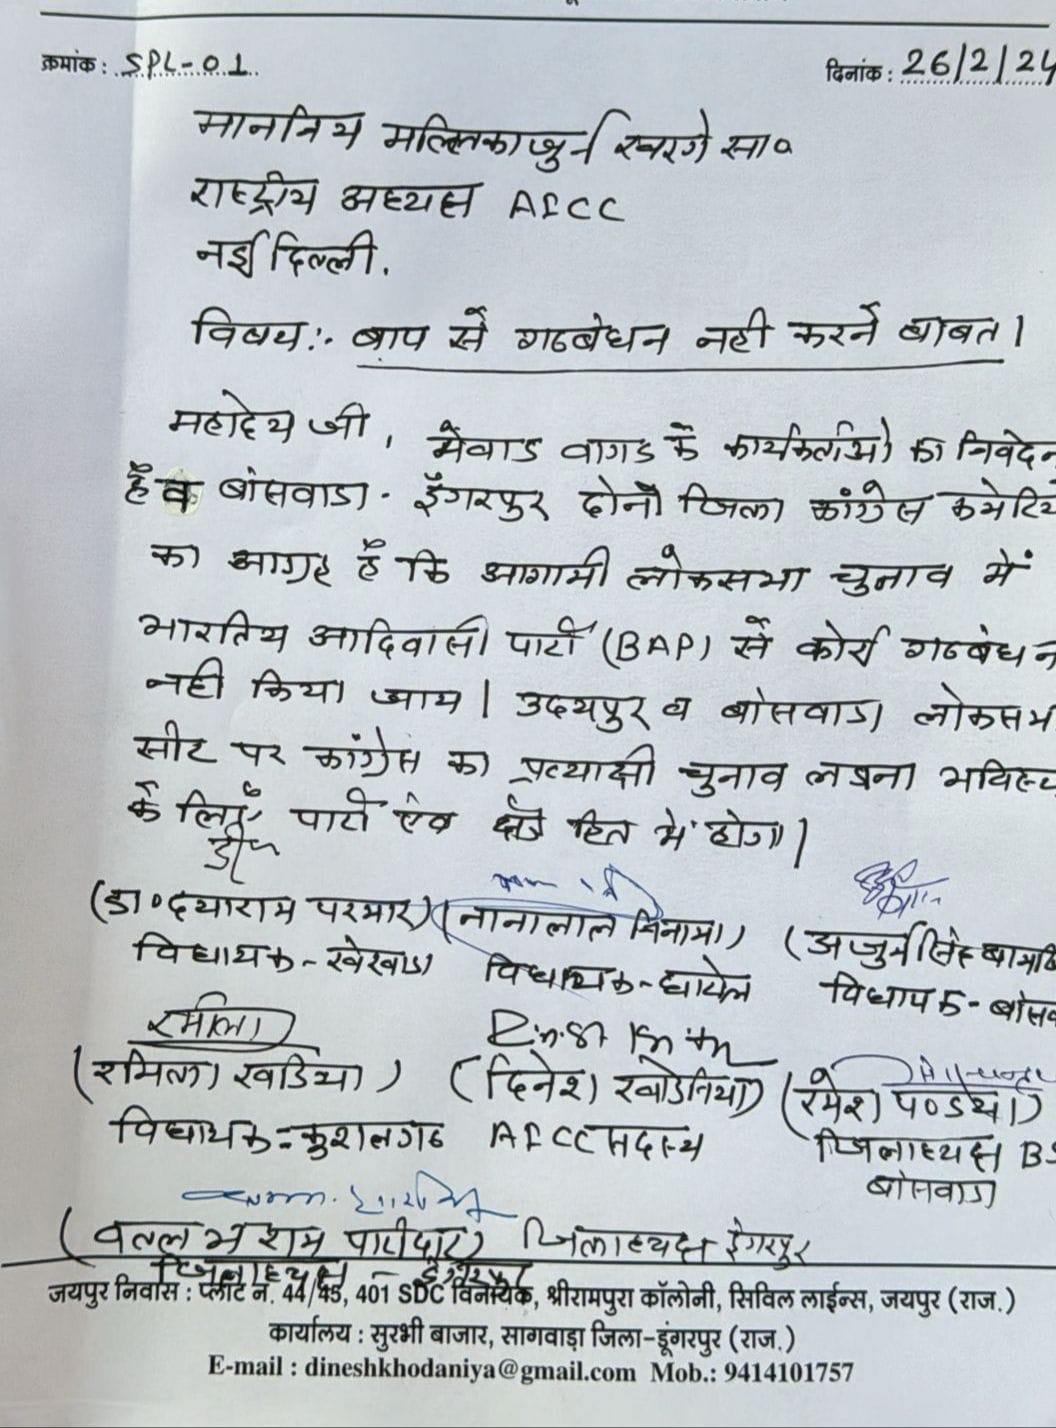 क्रमांक : SPL-01
दिनांक : 26/2/24
माननिय मल्लिकाजुर्न खरगे सा०
राष्ट्रीय अध्यक्ष AICC
नई दिल्ली.
विषय:- बाप सें गठबंधन नही करनें बाबत।
महोदय जी, मेंवाड वागड कें कार्यकर्ताओ का निवेदन
हैं व बांसवाडा - डूँगरपुर दोनों जिला कांग्रेस कमेटियो
का आग्रह हैं कि आगामी लोकसभा चुनाव में
भारतिय आदिवासी पार्टी (BAP) सें कोई गठबंधन
नही किया जाय। उदयपुर व बांसवाडा लोकसभ
सीट पर कांग्रेस का प्रत्याक्षी चुनाव लडना भविष्य
कें लिएँ पार्टी एंव क्षेत्र हित में होगा।
(डा० दयाराम परमार) (नानालाल निनामा) (अजुर्नसिंह बामनि
विधायक - खेरवाडा विधायक - घाटोल विधायक - बांसव
रमिला
(रमिला खडिया) (दिनेश खोडनिया) (रमेश पण्डया)
विधायक - कुशलगढ AICC सदस्य जिलाध्यक्ष
बांसवाडा
(वल्लभ राम पाटीदार) जिलाध्यक्ष डूंगरपुर
जिलाध्यक्ष - डूंगरपुर
जयपुर निवास : प्लॉट न. 44/45, 401 SDC विनायक, श्रीरामपुरा कॉलोनी, सिविल लाईन्स, जयपुर (राज.)
कार्यालय : सुरभी बाजार, सागवाड़ा जिला-डूंगरपुर (राज.)
E-mail : dineshkhodaniya@gmail.com Mob.: 9414101757